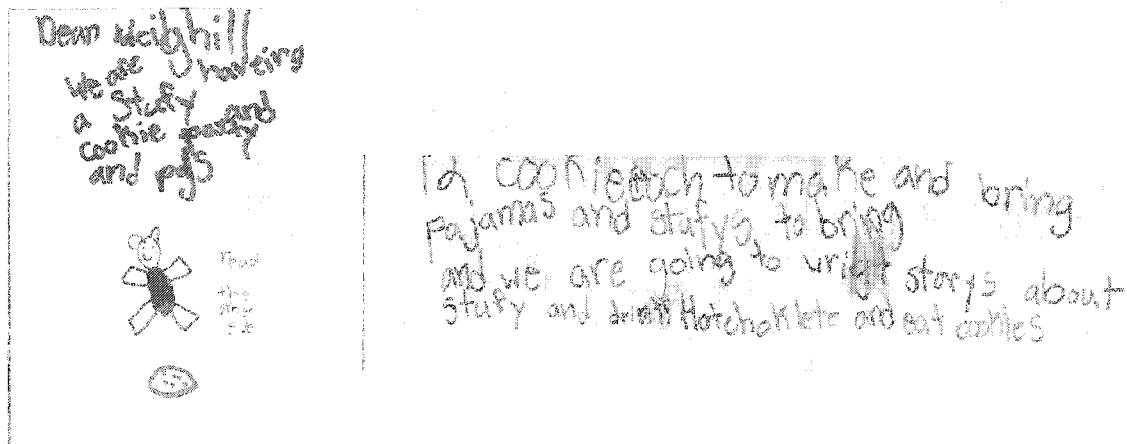 Dear Meilghill
we are haveing
a stufy
cookie party and
and pjs
read
the
other
side
12 cookie each to make and bring
pajamas and stufys to bring
and we are going to wright storys about
stufy and drink Hotchoklete and eat cookies